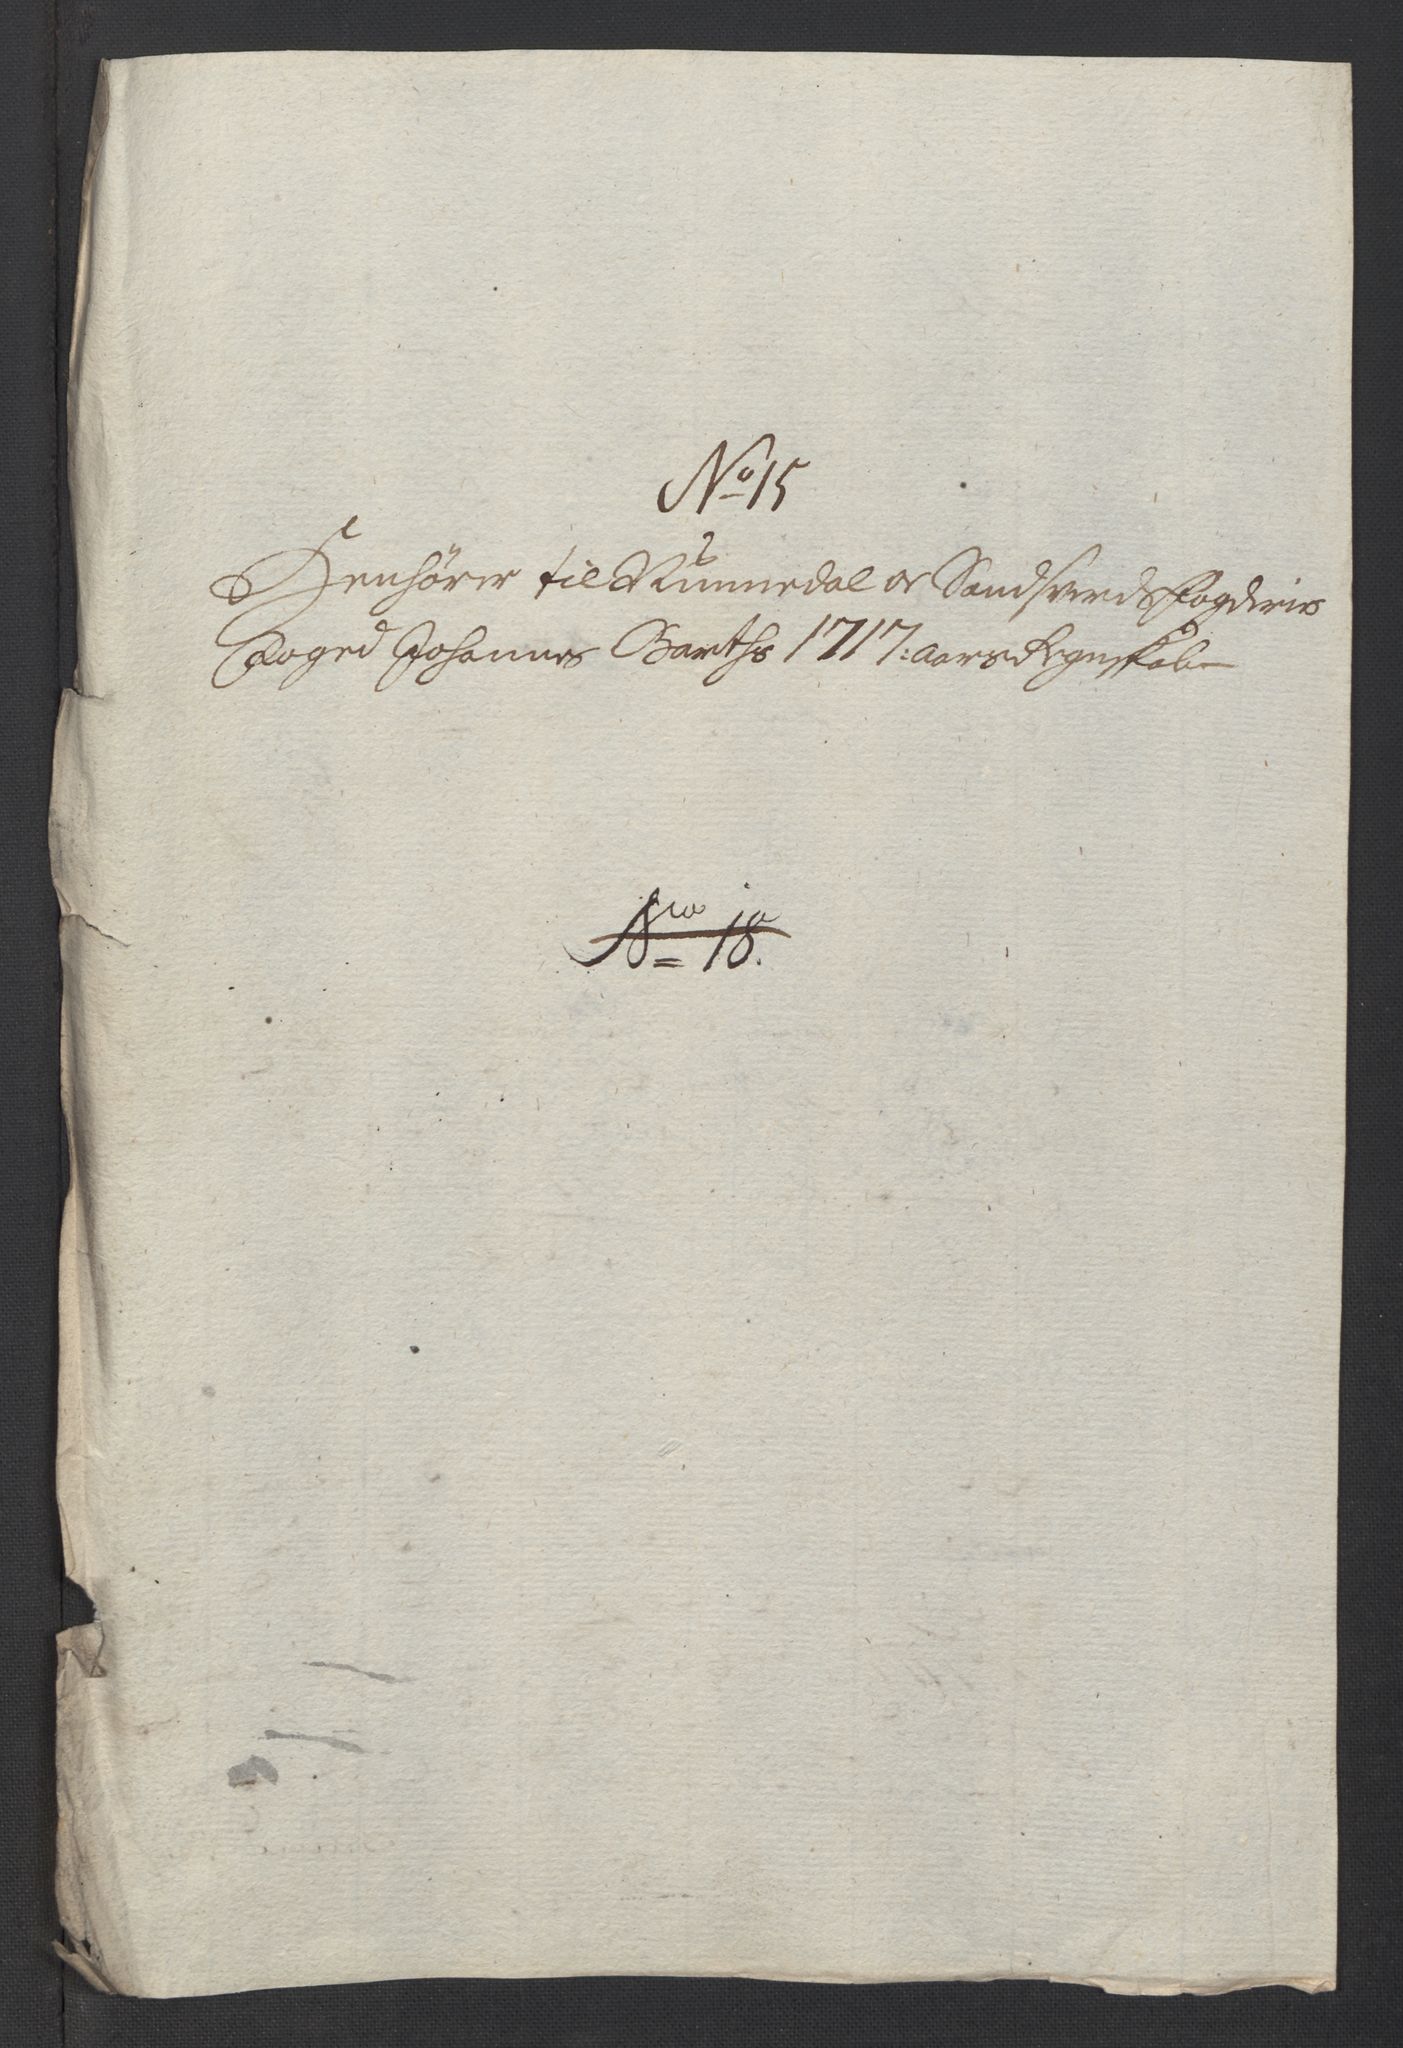 No 15
Henhører til Nummedal oc Sandsverds Fogderies
Foged Johannes Barths 1717: aars Regnskab
Nro 18.